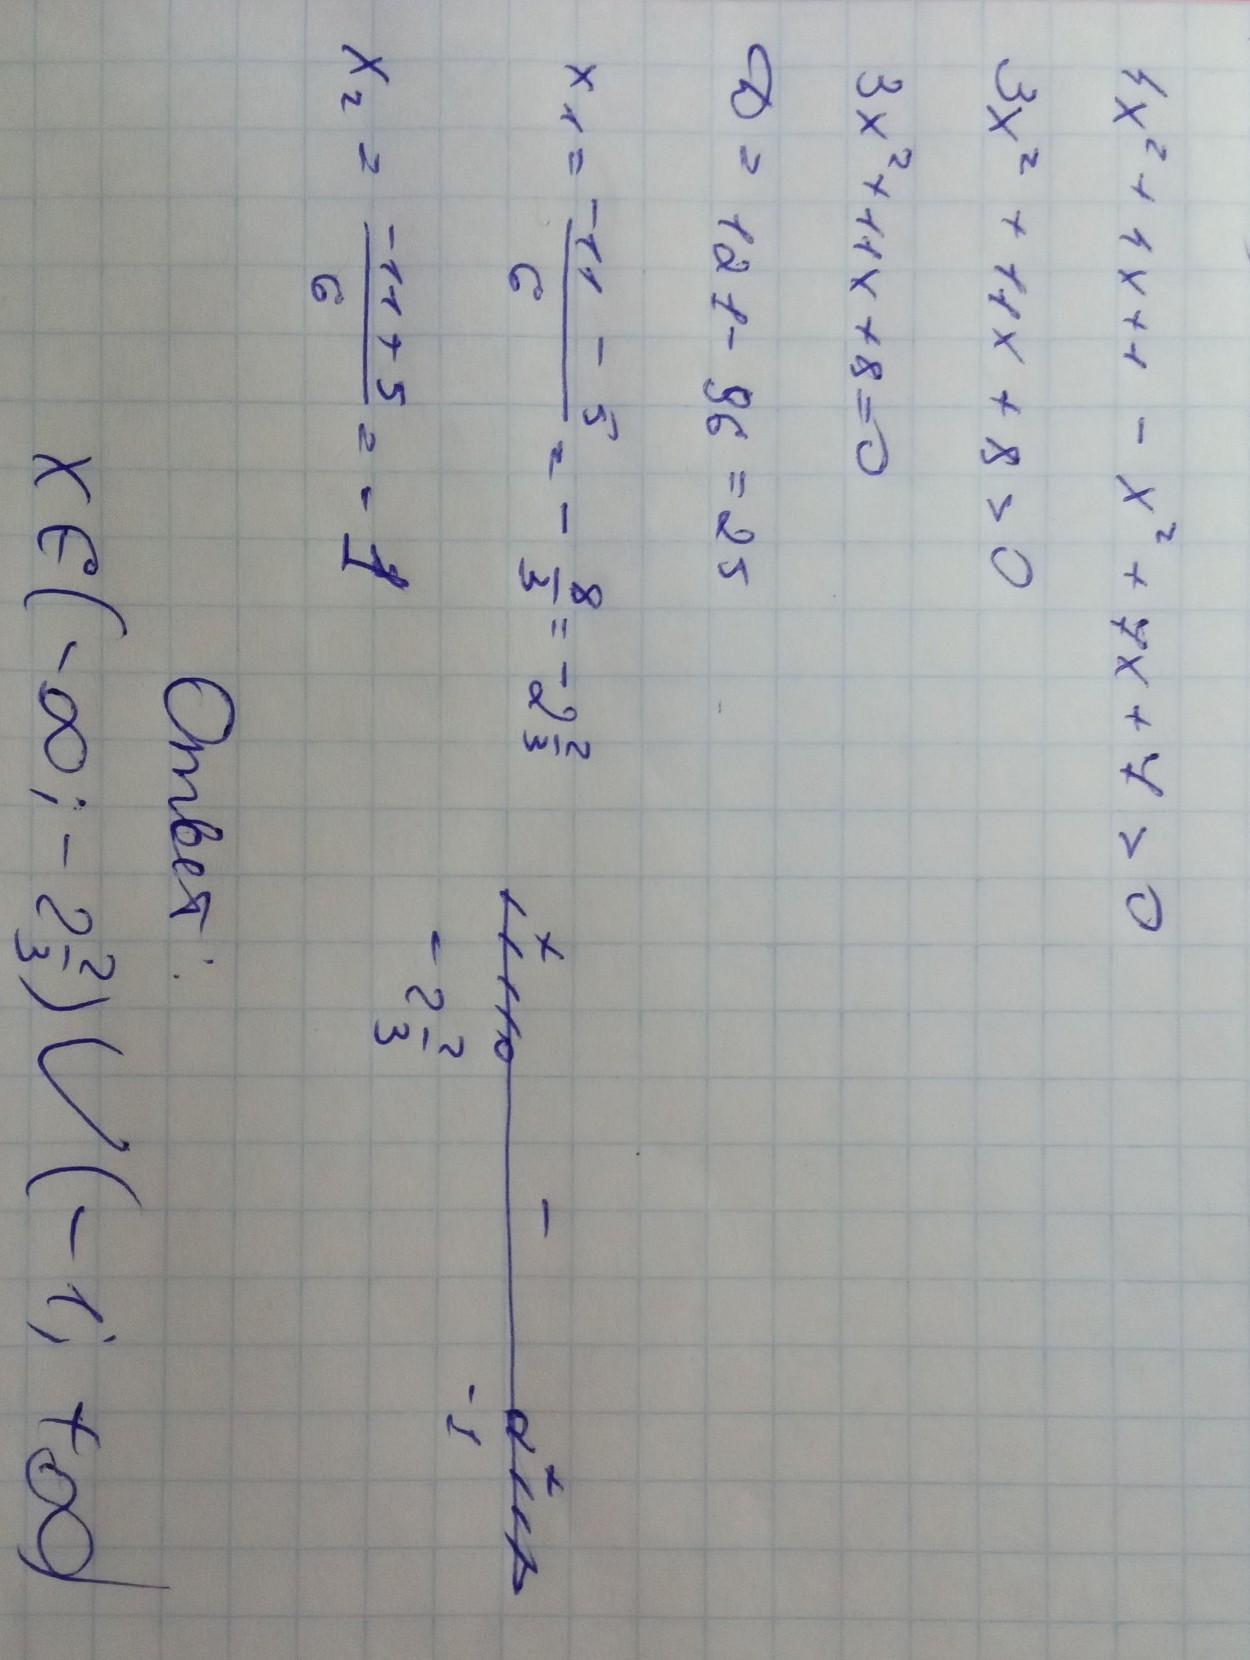 4x² + 4x + 1 - x² + 7x + 7 > 0
3x² + 11x + 8 > 0
3x² + 11x + 8 = 0
D = 121 - 96 = 25
x₁ = (-11 - 5)/6 = - 8/3 = -2 2/3
x₂ = (-11 + 5)/6 = -1
+ - +
-2 2/3 -1
Ответ:
x ∈ (-∞; -2 2/3) ∪ (-1; +∞)